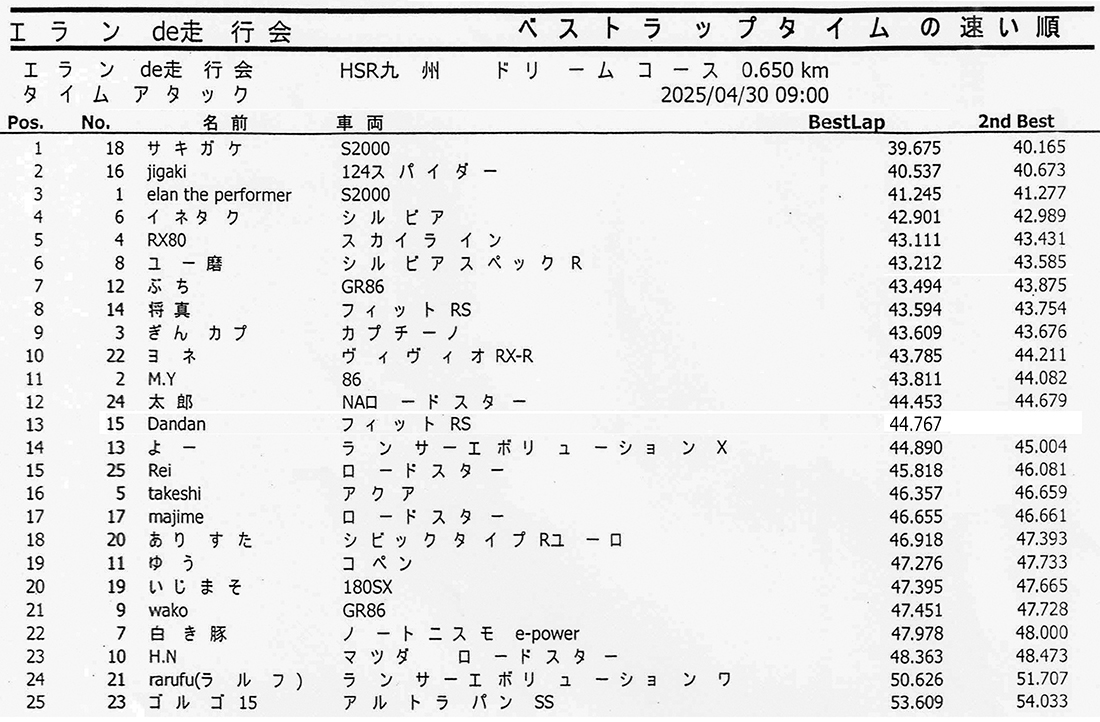 エラン de走行会 ベストラップタイムの速い順
エラン de走行会 HSR九州 ドリームコース 0.650 km
タイムアタック 2025/04/30 09:00
Pos. No. 名前 車両 BestLap 2nd Best
1 18 サキガケ S2000 39.675 40.165
2 16 jigaki 124スパイダー 40.537 40.673
3 1 elan the performer S2000 41.245 41.277
4 6 イネタク シルビア 42.901 42.989
5 4 RX80 スカイライン 43.111 43.431
6 8 ユー磨 シルビアスペックR 43.212 43.585
7 12 ぶち GR86 43.494 43.875
8 14 将真 フィットRS 43.594 43.754
9 3 ぎんカプ カプチーノ 43.609 43.676
10 22 ヨネ ヴィヴィオRX-R 43.785 44.211
11 2 M.Y 86 43.811 44.082
12 24 太郎 NAロードスター 44.453 44.679
13 15 Dandan フィットRS 44.767
14 13 よー ランサーエボリューションX 44.890 45.004
15 25 Rei ロードスター 45.818 46.081
16 5 takeshi アクア 46.357 46.659
17 17 majime ロードスター 46.655 46.661
18 20 ありすた シビックタイプRユーロ 46.918 47.393
19 11 ゆう コペン 47.276 47.733
20 19 いじまそ 180SX 47.395 47.665
21 9 wako GR86 47.451 47.728
22 7 白き豚 ノートニスモ e-power 47.978 48.000
23 10 H.N マツダ ロードスター 48.363 48.473
24 21 rarufu(ラルフ) ランサーエボリューションワ 50.626 51.707
25 23 ゴルゴ15 アルトラパンSS 53.609 54.033